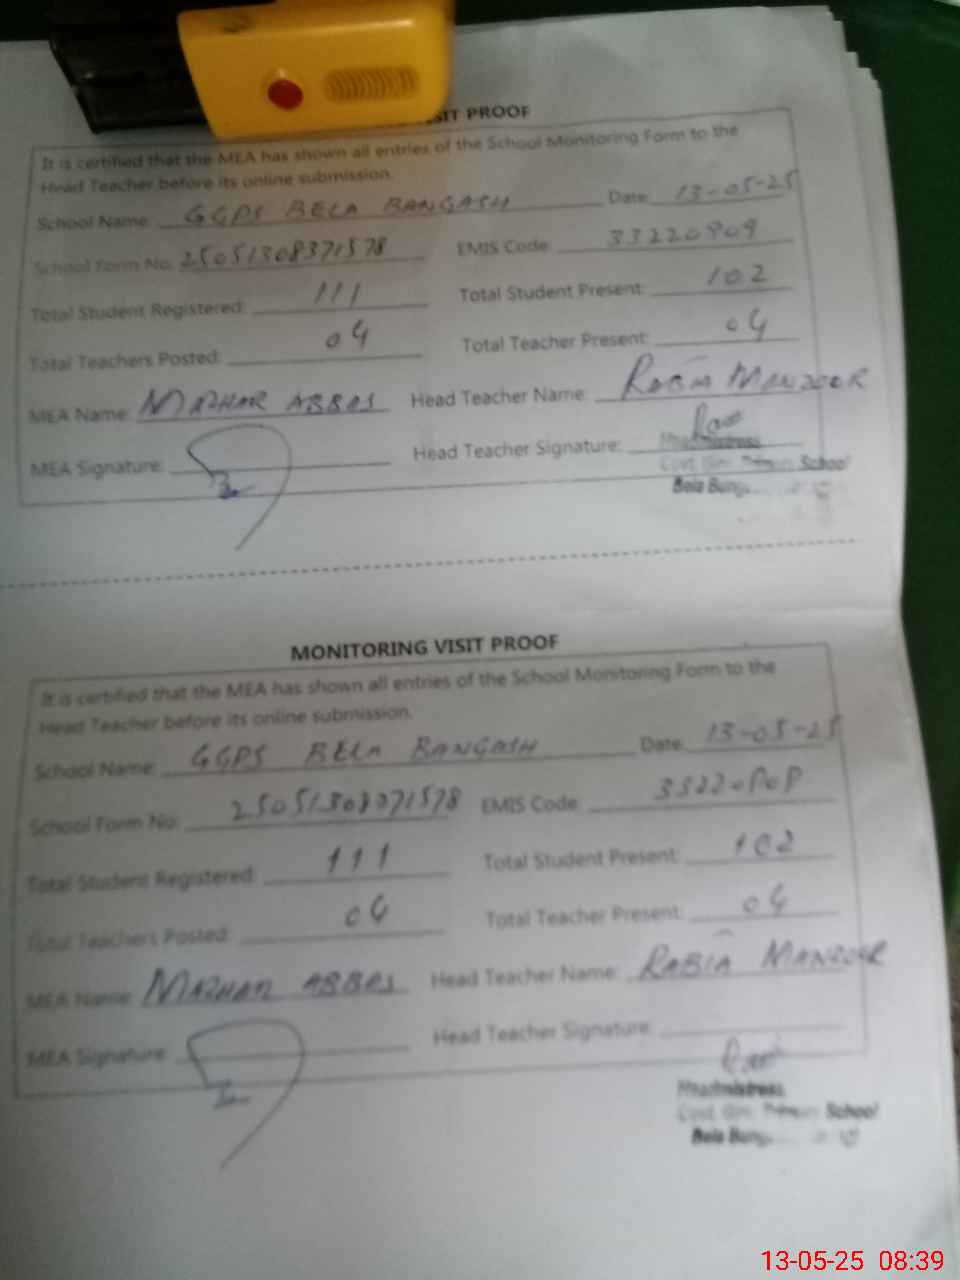 VISIT PROOF
It is certified that the MEA has shown all entries of the School Monitoring Form to the
Head Teacher before its online submission.
School Name: GGPS BELA BANGASH Date: 13-05-25
School Form No: 25051308371578 EMIS Code: 33220909
Total Student Registered: 111 Total Student Present: 102
Total Teachers Posted: 04 Total Teacher Present: 04
MEA Name: MAZHAR ABBAS Head Teacher Name: RABIA MANZOOR
MEA Signature: Head Teacher Signature:
Headmistress
Govt. Primary School
Bela Bung
MONITORING VISIT PROOF
It is certified that the MEA has shown all entries of the School Monitoring Form to the
Head Teacher before its online submission.
School Name: GGPS BELA BANGASH Date: 13-05-25
School Form No: 25051308371578 EMIS Code:
Total Student Registered: 111 Total Student Present: 102
Total Teachers Posted: 04 Total Teacher Present: 04
MEA Name: MAZHAR ABBAS Head Teacher Name: RABIA MANZOOR
MEA Signature: Head Teacher Signature:
Headmistress
Govt. Primary School
Bela Bung
13-05-25 08:39